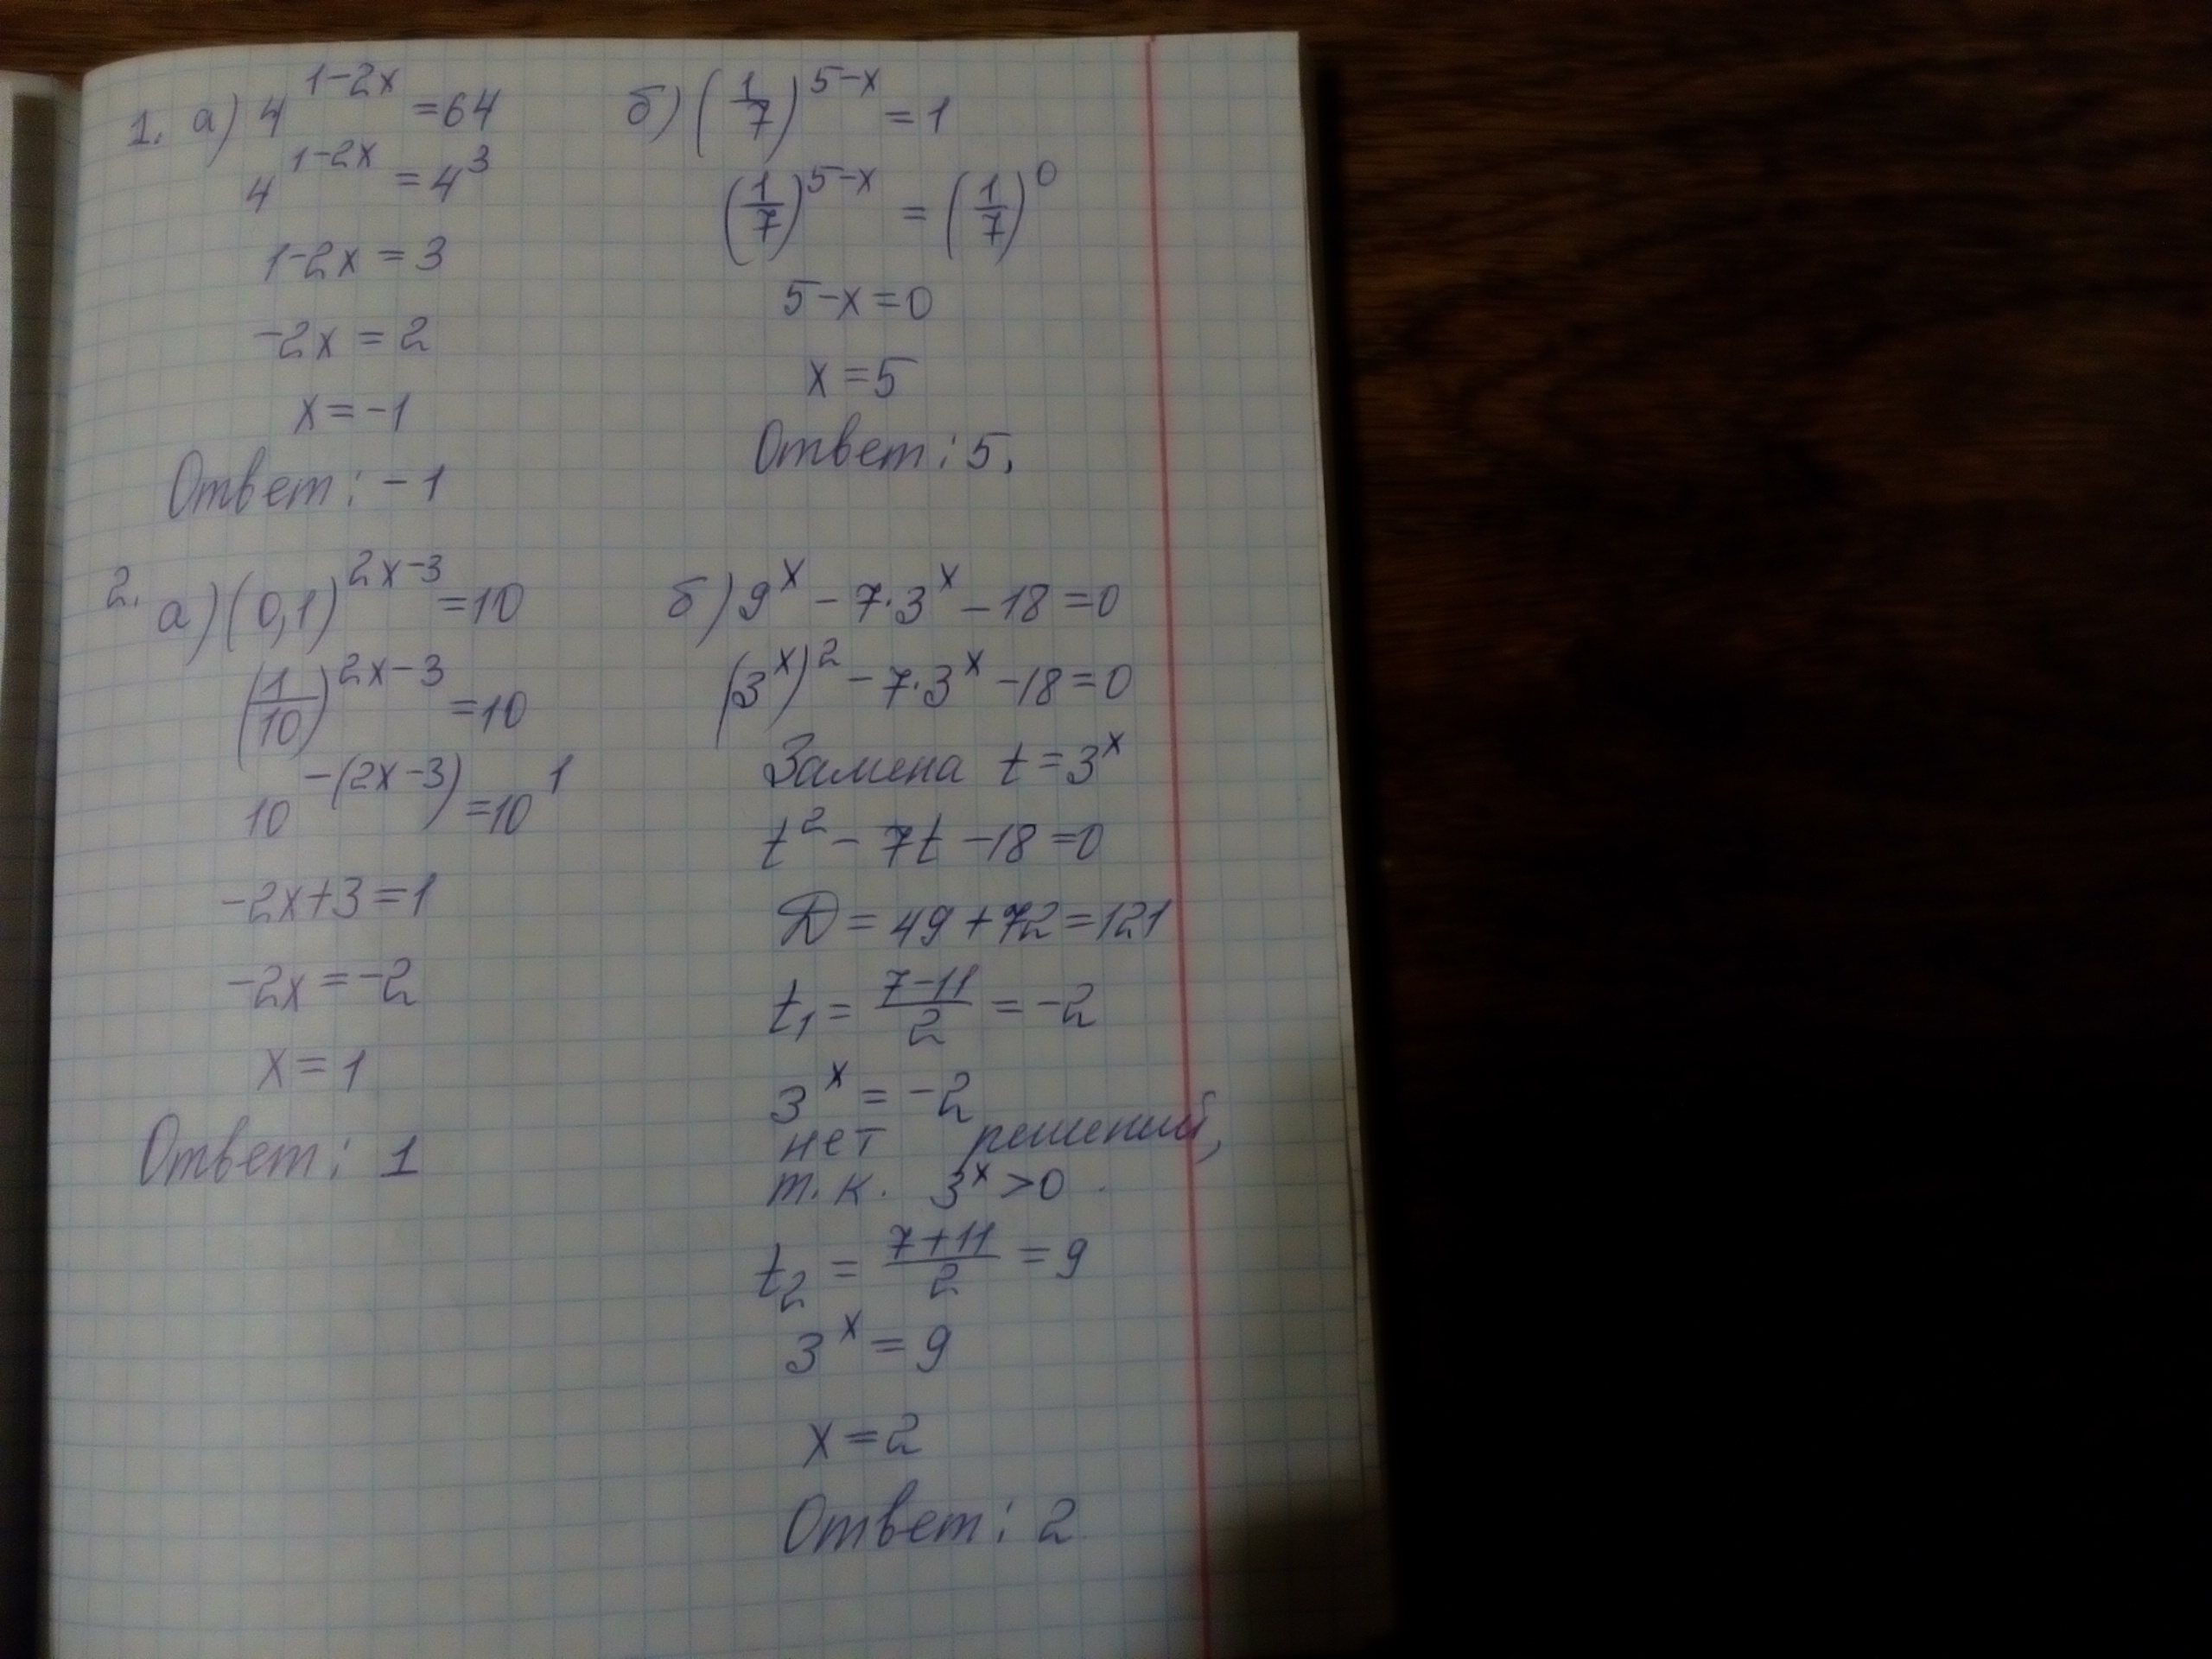 1. а) 4^(1-2x) = 64
4^(1-2x) = 4^3
1-2x = 3
-2x = 2
x = -1
Ответ: -1
б) (1/7)^(5-x) = 1
(1/7)^(5-x) = (1/7)^0
5-x = 0
x = 5
Ответ: 5.
2. а) (0,1)^(2x-3) = 10
(1/10)^(2x-3) = 10
10^(-(2x-3)) = 10^1
-2x+3 = 1
-2x = -2
x = 1
Ответ: 1
б) 9^x - 7·3^x - 18 = 0
(3^x)^2 - 7·3^x - 18 = 0
Замена t = 3^x
t^2 - 7t - 18 = 0
D = 49 + 72 = 121
t_1 = (7-11)/2 = -2
3^x = -2
нет решений,
т.к. 3^x > 0.
t_2 = (7+11)/2 = 9
3^x = 9
x = 2
Ответ: 2